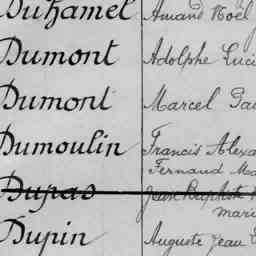 Duhamel Amand Noël
Dumont Adolphe Luci
Dumont Marcel
Dumoulin Francis Alexa
Fernand Ma
Dupas Jean Baptiste
mari
Dupin Auguste Jean